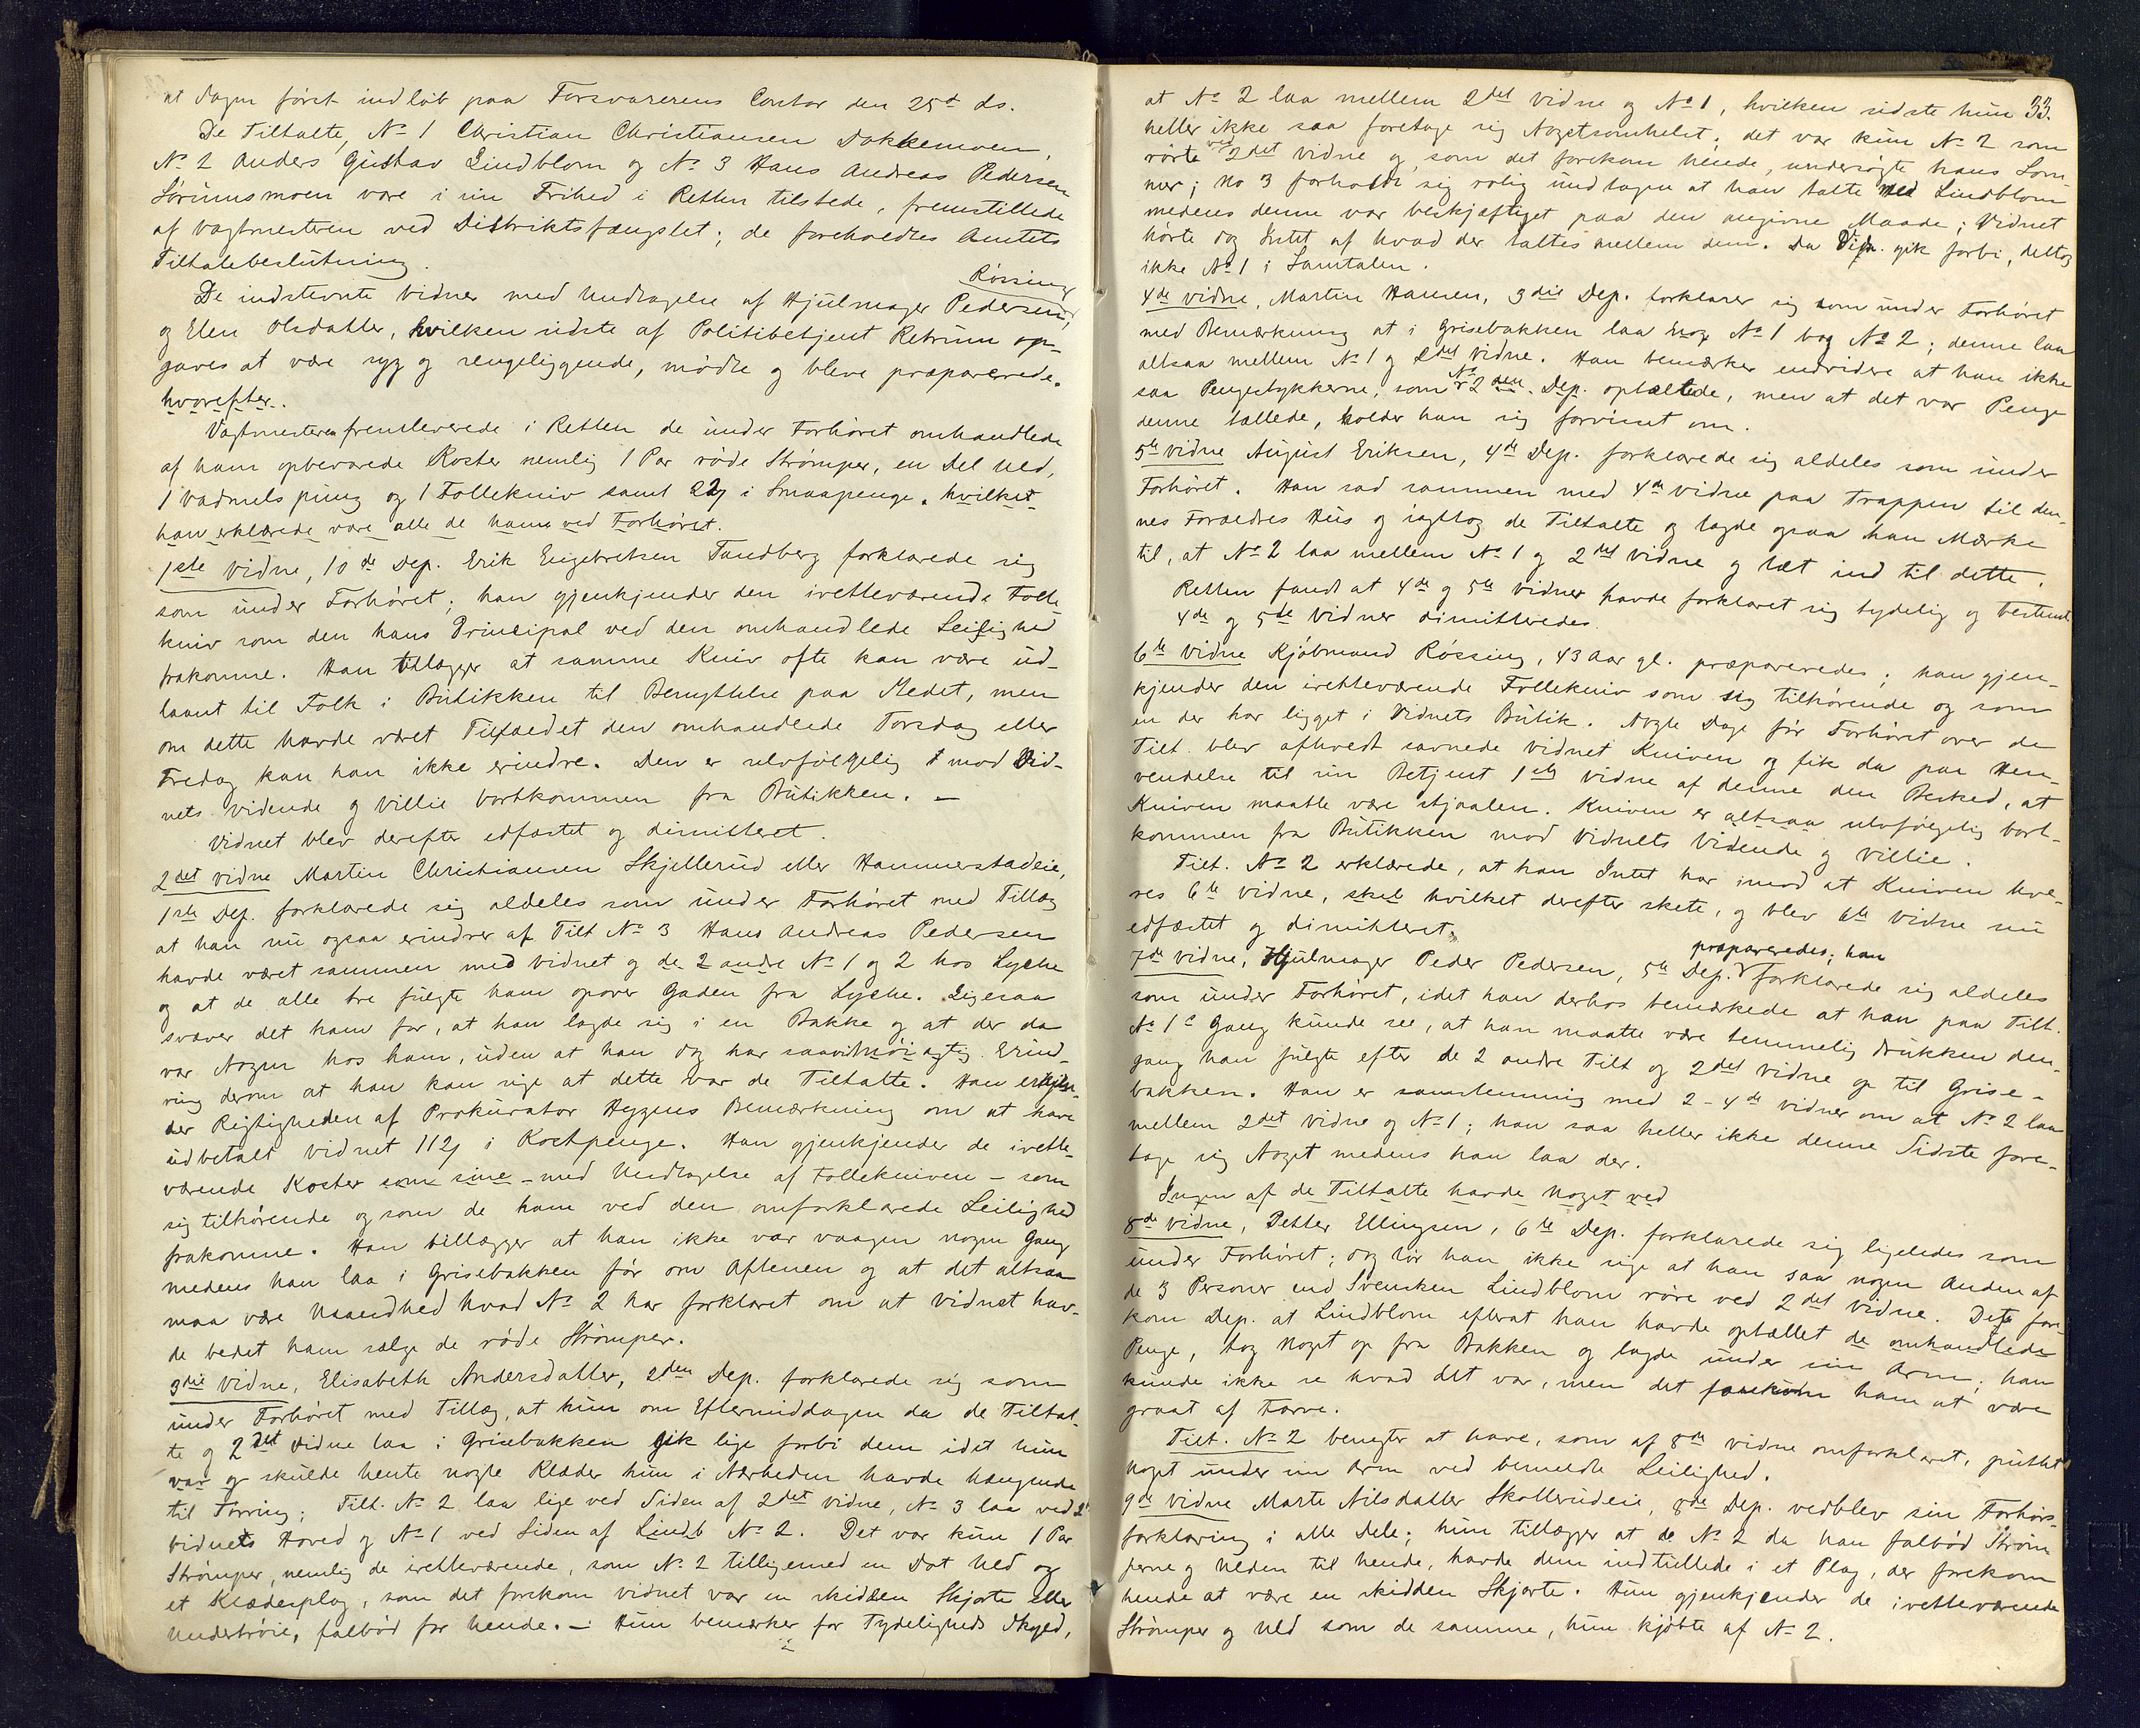 at dagen først indløb paa Forsvarerens Contor den 25de ds.
De Tiltalte, No 1 Christian Christiansen Dokkemoen,
No 2 Anders Gustav Lindblom og No 3 Hans Andreas Pedersen
Sørumsmoen vare i sin Frihed i Retten tilstede, fremstillede
af Vagtmesteren ved Distriktsfængslet; de foreholdtes Amtets
Tiltalebeslutning.
De indstevnte Vidner med Undtagelse af Hjulmager Pedersen, Røssing
og Elen Olsdatter, hvilken sidste af Politibetjent Retrum op-
gaves at være syg og sengeliggende, mødte og bleve præparerede.
hvorefter.
Vagtmesteren fremleverede i Retten de under Forhøret omhandlede
af ham opbevarede Koster nemlig 1 Par røde Strømper, en Del Uld,
1 Vadmels pung og 1 Follekniv samt 22 i Smaapenge. hvilket
han erklærede være alle de ham ved Forhøret.
1ste Vidne, 10de Dep. Erik Engebretsen Tandberg forklarede sig
som under Forhøret; han gjenkjender den iretteværende Folle-
kniv som den hans Principal ved den omhandlede Leilighed
frakomne. Han tillægger at samme Kniv ofte kan være ud-
laant til Folk i Butikken til Benyttelse paa Stedet, men
om dette havde været Tilfældet den omhandlede Torsdag eller
Fredag kan han ikke erindre. Den er ulvfølgelig mod Vid-
nets Vidende og Villie bortkommen fra Butikken. —
Vidnet blev derefter edfæstet og dimitteret.
2det Vidne Martin Christiansen Skjellerud eller Hammerstadeie,
1ste Dep. forklarede sig aldeles som under Forhøret med Tillæg
at han nu ogsaa erindrer af Tilt No 3 Hans Andreas Pedersen
havde været sammen med Vidnet og de 2 andre No 1 og 2 hos Lyche
og at de alle tre fulgte ham opover Gaden fra Lyche. Ligesaa
svæver det ham for, at han lagde sig i en Bakke og at der da
var Nogen hos ham, uden at han dog har saavidt nøiagtig Erind-
ring derom at han kan sige at dette var de Tiltalte. Han erkjen-
der Rigtigheden af Prokurator Hygens Bemærkning om at have
udbetalt Vidnet 112 i Kostpenge. Han gjenkjender de irette-
værende Koster som sine – med Undtagelse af Follekniven – som
sig tilhørende og som de ham ved den omforklarede Leilighed
frakomne. Han tillægger at han ikke var vaagen nogen Gang
medens han laa i Grisebakken før om Aftenen og at det altsaa
maa være Usandhed hvad No 2 har forklaret om at Vidnet hav-
de bedet ham sælge de røde Strømper.
3die Vidne, Elisabeth Andersdatter, 2den Dep. forklarede sig som
under Forhøret med Tillæg, at hun om Eftermiddagen da de Tiltal-
te og 2det Vidne laa i Grisebakken gik lige forbi dem idet hun
var og skulde hente nogle Klæder hun i Nærheden havde hængende
til Tørring; Tilt. No 2 laa lige ved Siden af 2det Vidne, No 3 laa ved 2d
Vidnets Hoved og No 1 ved Siden af Lindb No 2. Det var kun 1 Par
Strømper, nemlig de iretteværende, som No 2 tilligemed en Dot Uld og
et Klædesplag, som det forekom Vidnet var en skidden Skjorte eller
Undertrøie, falbød for hende. – Hun bemærker for Tydeligheds Skyld,
33.
at No 2 laa mellem 2det Vidne og No 1, hvilken sidste hun
heller ikke saa foretage sig Nogetsomhelst; det var kun No 2 som
rørte ved 2det Vidne og som det forekom hende, undersøgte hans Lom-
mer; No 3 forholdt sig rolig undtagen at han talte med Lindblom
medens denne var beskjæftiget paa den angivne Maade; Vidnet
hørte dog Intet af hvad der taltes mellem dem. Da Dep. gik forbi, deltog
ikke No 1 i Samtalen.
4de Vidne, Martin Hansen, 3die Dep. forklarer sig som under Forhøret
med Bemærkning at i Grisebakken laa nok No 1 bag No 2; denne laa
altsaa mellem No 1 og 2det Vidne. Han bemærker endvidere at han ikke
saa Pengestykkerne, som No 2 den Dep. optællede, men at det var Penge
denne tællede, holder han sig forvisset om.
5te Vidne August Eriksen, 4de Dep. forklarede sig aldeles som under
Forhøret. Han sad sammen med 4de Vidne paa Trappen til den-
nes Forældres Hus og iagttog de Tiltalte og lagde ogsaa han Mærke
til, at No 2 laa mellem No 1 og 2det Vidne og tæt ind til dette.
Retten fandt at 4de og 5te Vidner havde forklaret sig tydelig og bestemt.
4de og 5te Vidner dimitteredes.
6te Vidne Kjøbmand Røssing, 43 Aar gl. præpareredes; han gjen-
kjender den iretteværende Follekniv som sig tilhørende og som
en der har ligget i Vidnets Butik. Nogle Dage før Forhøret over de
Tilt. blev afholdt savnede Vidnet Kniven og fik da paa Hen-
vendelse til sin Betjent 1ste Vidne af denne den Besked, at
Kniven maatte være stjaalen. Kniven er altsaa ulvfølgelig bort-
kommen fra Butikken mod Vidnets Vidende og Villie.
Tilt. No 2 erklærede, at han Intet har imod at Kniven leve-
res 6te Vidne, skeet hvilket derefter skete, og blev 6te Vidne nu
edfæstet og dimitteret.
7de Vidne, Hjulmager Peder Pedersen, 5te Dep. præpareredes; han forklarede sig aldeles
som under Forhøret, idet han derhos bemærkede at han paa Tilt.
No 1s Gang kunde see, at han maatte være temmelig drukken den-
gang han fulgte efter de 2 andre Tilt og 2det Vidne op til Grise-
bakken. Han er samstemmig med 2–4de Vidner om at No 2 laa
mellem 2det Vidne og No 1; han saa heller ikke denne Sidste fore-
tage sig Noget medens han laa der.
Ingen af de Tiltalte havde Noget ved
8de Vidne, Petter Ellingsen, 6te Dep. forklarede sig ligeledes som
under Forhøret; dog tør han ikke sige at han saa nogen Anden af
de 3 Personer end Svensken Lindblom røre ved 2det Vidne. Det fore-
kom Dep. at Lindblom efterat han havde optællet de omhandlede
Penge, tog Noget op fra Bakken og lagde under sin Arm; han
kunde ikke se hvad det var, men det forekom ham at være
graat af Farve.
Tilt. No 2 benegter at have, som af 8de Vidne omforklaret, puttet
Noget under sin Arm ved bemeldte Leilighed.
9de Vidne Marte Nilsdatter Skollerudeie, 8de Dep. vedblev sin Forhørs-
forklaring i alle Dele; hun tillægger at de No 2 da han falbød Strøm-
perne og Ulden til hende, havde dem indtullede i et Plag, der forekom
hende at være en skidden Skjorte. Hun gjenkjender de iretteværende
Strømper og Uld som de samme, hun kjøbte af No 2.